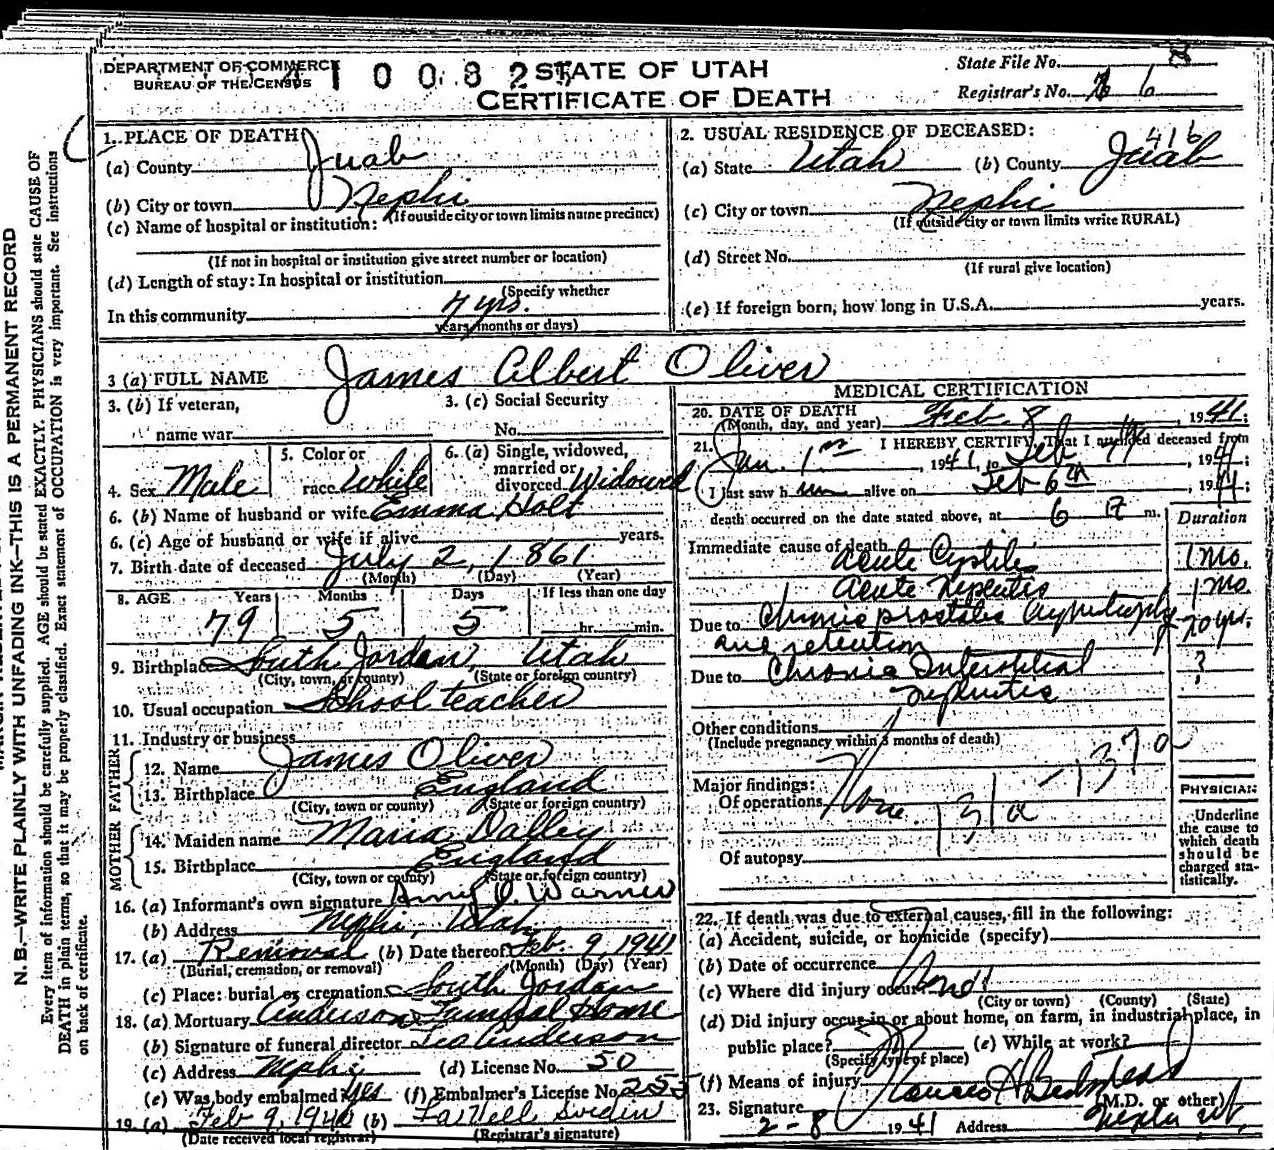 DEPARTMENT OF COMMERCE
BUREAU OF THE CENSUS
STATE OF UTAH
CERTIFICATE OF DEATH
State File No. 8
Registrar's No. 6
1. PLACE OF DEATH
(a) County Juab
(b) City or town Nephi
(If outside city or town limits name precinct)
(c) Name of hospital or institution:
(If not in hospital or institution give street number or location)
(d) Length of stay: In hospital or institution
(Specify whether
In this community 7 yrs.
years, months or days)
2. USUAL RESIDENCE OF DECEASED:
416
(a) State Utah (b) County Juab
(c) City or town Nephi
(If outside city or town limits write RURAL)
(d) Street No.
(If rural give location)
(e) If foreign born, how long in U.S.A. years.
3 (a) FULL NAME James Albert Oliver
3. (b) If veteran,
name war
3. (c) Social Security
No.
4. Sex Male
5. Color or
race White
6. (a) Single, widowed,
married or
divorced Widowed
6. (b) Name of husband or wife Emma Holt
6. (c) Age of husband or wife if alive years.
7. Birth date of deceased July 2, 1861
(Month) (Day) (Year)
8. AGE Years Months Days If less than one day
79 5 5 hr. min.
9. Birthplace South Jordan, Utah
(City, town, or county) (State or foreign country)
10. Usual occupation School teacher
11. Industry or business
FATHER
12. Name James Oliver
13. Birthplace England
(City, town or county) (State or foreign country)
MOTHER
14. Maiden name Maria Dalley
15. Birthplace England
(City, town or county) (State or foreign country)
16. (a) Informant's own signature O. Warner
(b) Address Nephi, Utah
17. (a) Removal (b) Date thereof Feb. 9, 1941
(Burial, cremation, or removal) (Month) (Day) (Year)
(c) Place: burial or cremation South Jordan
18. (a) Mortuary Anderson Funeral Home
(b) Signature of funeral director Leo Anderson
(c) Address Nephi (d) License No. 50
(e) Was body embalmed Yes (f) Embalmer's License No. 255
19. (a) Feb 9, 1940 (b)
(Date received local registrar) (Registrar's signature)
MEDICAL CERTIFICATION
20. DATE OF DEATH
(Month, day, and year) Feb. 8, 1941:
21. I HEREBY CERTIFY, That I attended deceased from
Jan. 1st, 1941, to Feb, 1941:
I last saw him alive on Feb 6th, 1941:
death occurred on the date stated above, at 6 P m.
Duration
Immediate cause of death
Acute Cystitis 1 Mo.
Acute Nephritis 1 Mo.
Due to Chronic prostatic hypertrophy 20 yrs.
and retention
Due to Chronic Interstitial ?
nephritis
Other conditions
(Include pregnancy within 3 months of death)
137a
Major findings:
Of operations None. 131a
Of autopsy
PHYSICIAN:
Underline
the cause to
which death
should be
charged sta-
tistically.
22. If death was due to external causes, fill in the following:
(a) Accident, suicide, or homicide (specify)
(b) Date of occurrence
(c) Where did injury occur
(City or town) (County) (State)
(d) Did injury occur in or about home, on farm, in industrial place, in
public place? (e) While at work?
(Specify type of place)
(f) Means of injury
23. Signature (M.D. or other)
2-8 1941 Address Nephi Ut.
N. B.—WRITE PLAINLY WITH UNFADING INK—THIS IS A PERMANENT RECORD
Every item of information should be carefully supplied. AGE should be stated EXACTLY. PHYSICIANS should state CAUSE OF
DEATH in plain terms, so that it may be properly classified. Exact statement of OCCUPATION is very important. See instructions
on back of certificate.